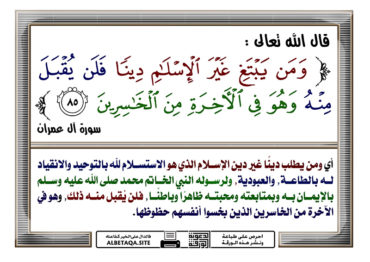 قال الله تعالى :
﴿ وَمَن يَبْتَغِ غَيْرَ ٱلْإِسْلَٰمِ دِينًا فَلَن يُقْبَلَ
مِنْهُ وَهُوَ فِي ٱلْأَخِرَةِ مِنَ ٱلْخَٰسِرِينَ ٨٥ ﴾
سورة آل عمران
أي ومن يطلب دينًا غير دين الإسلام الذي هو الاستسلام لله بالتوحيد والانقياد
له بالطاعة، والعبودية، ولرسوله النبي الخاتم محمد صلى الله عليه وسلم
بالإيمان به وبمتابعته ومحبته ظاهرًا وباطنًا، فلن يُقبل منه ذلك، وهو في
الآخرة من الخاسرين الذين بخسوا أنفسهم حظوظها.
احرص على طباعة
ونشر هذه الورقة
فالدال على الخير كفاعله
ALBETAQA.SITE